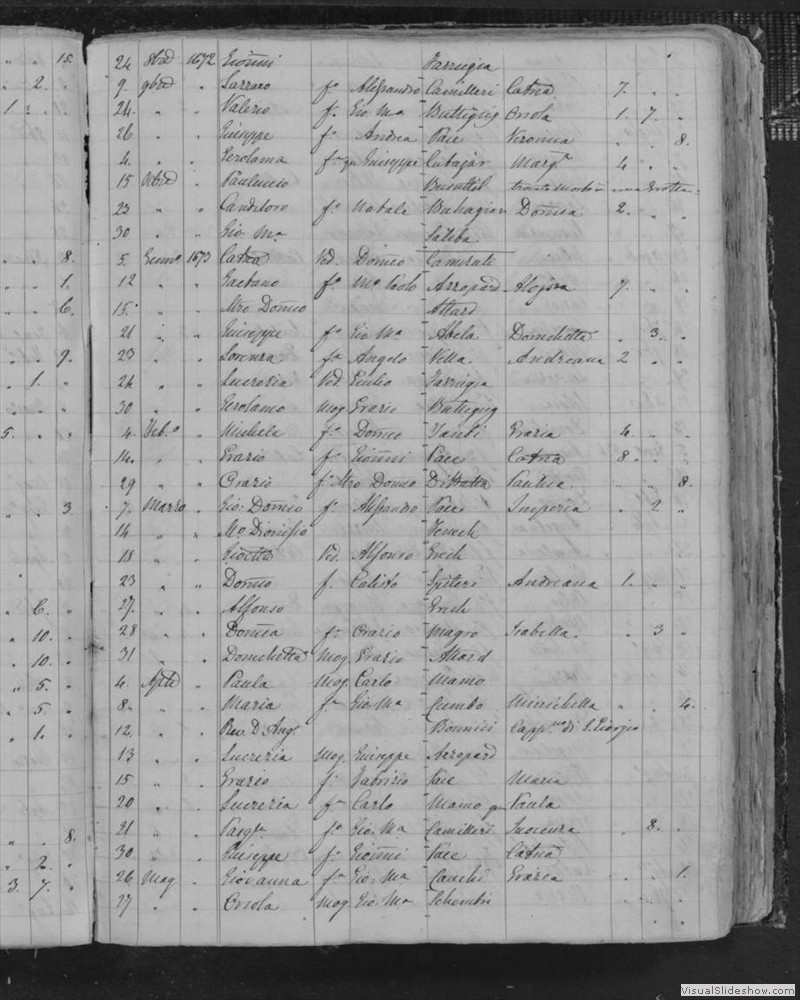 15. 24 8bre 1672 Gioñni Farrugia
2. 9 9bre " Lazzaro fo Alessandro Camilleri Catña 7.
1. 24. " " Valerio f. Gio Ma Buttigieg Orsola 1. 7.
26 " " Giuseppe fo Andrea Pace Veronica 8.
4. " " Gerolama fa qm Giuseppe Cutajar Marga 4
15 Xbre " Pauluccio Busuttil
23 " " Candiloro fo Natale Buhagiar Domca 2.
30 " " Gio. Ma Saliba
8. 5. Genno 1673 Catña Ved. Domco
1. 12 " " Gaetano fo Ma Paolo Azzopard Aloysia 7.
6. 15. " " Mro Domco Attard
21 " " Giuseppe fo Gio Ma Abela Domchetta 3.
9. 23 " " Lorenza fa Angelo Vella Andreana 2
1. 24 " " Lucrezia Ved Giulio Farrugia
30 " " Gerolamo mog Grazio Buttigieg
5. 4. Feb.o " Michele fo Domco Grazia 4.
14. " " Grazio fo Gioñni Pace Catña 8.
29 " " Orazio fo Mro Domco Paulica 8.
3 7. Marzo " Gio: Domco fo Alessandro Pace Imperia 2
14 " " Mo Dionisio
18 " " Ved. Alfonso Grech
23 " " Domco f. Calisto Spiteri Andreana 1.
6. 27. " " Alfonso Grech
10. 28 " " Domca fa Orazio Magro Isabella. 3
10. 31 " " Domchetta mog Grazio Attard
5. 4. Aple " Paula mog. Carlo Mamo
5. 8. " " Maria fa Gio Ma Cumbo Minichella 4.
1. 12. " " Rev. D. Ang. Bonnici Capp.no di S. Giorgio
13 " " Lucrezia mog Giuseppe Azzopard
15 " " Grazio fo Fabrizio Pace Maria
20 " " Lucrezia fa Carlo Mamo qm Paula
8. 21 " " Pasqle fo Gio. Ma Camilleri Inocenza 8.
2. 30 " " Giuseppe fo Gioñni Pace Catña
3. 7. 26 Mag " Giovanna fa Gio. Ma Cauchi Grazia 1.
27 " " Orsola mog Gio: Ma Schembri
VisualSlideshow.com